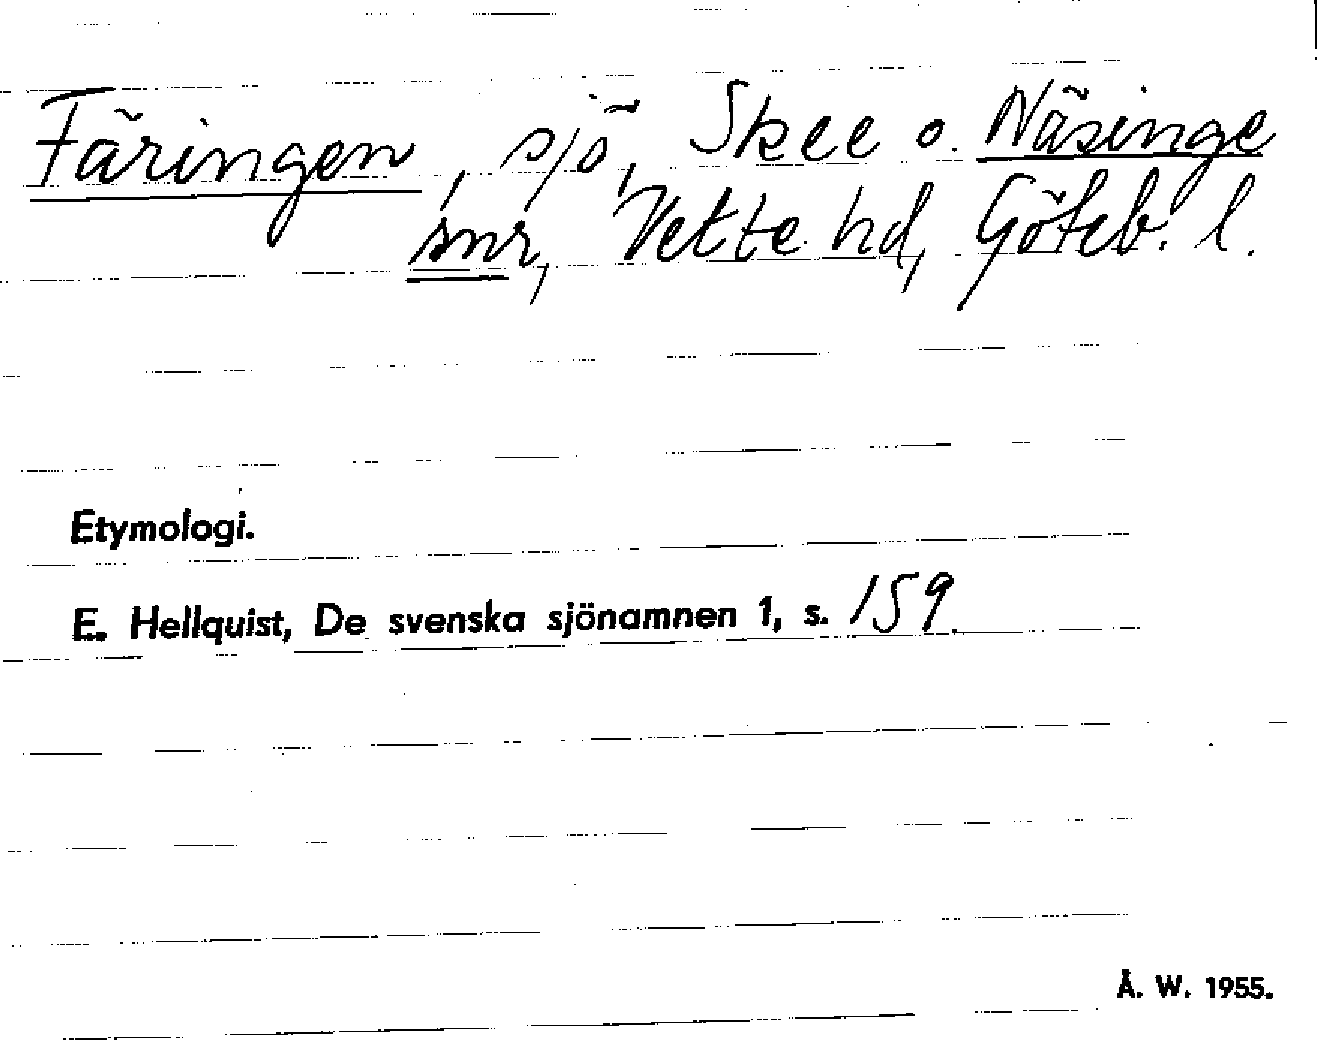 Färingen, sjö, Skee o. Näsinge
snr, Vette hd, Göteb. l.
Etymologi.
E. Hellquist, De svenska sjönamnen 1, s. 159.
Å. W. 1955.